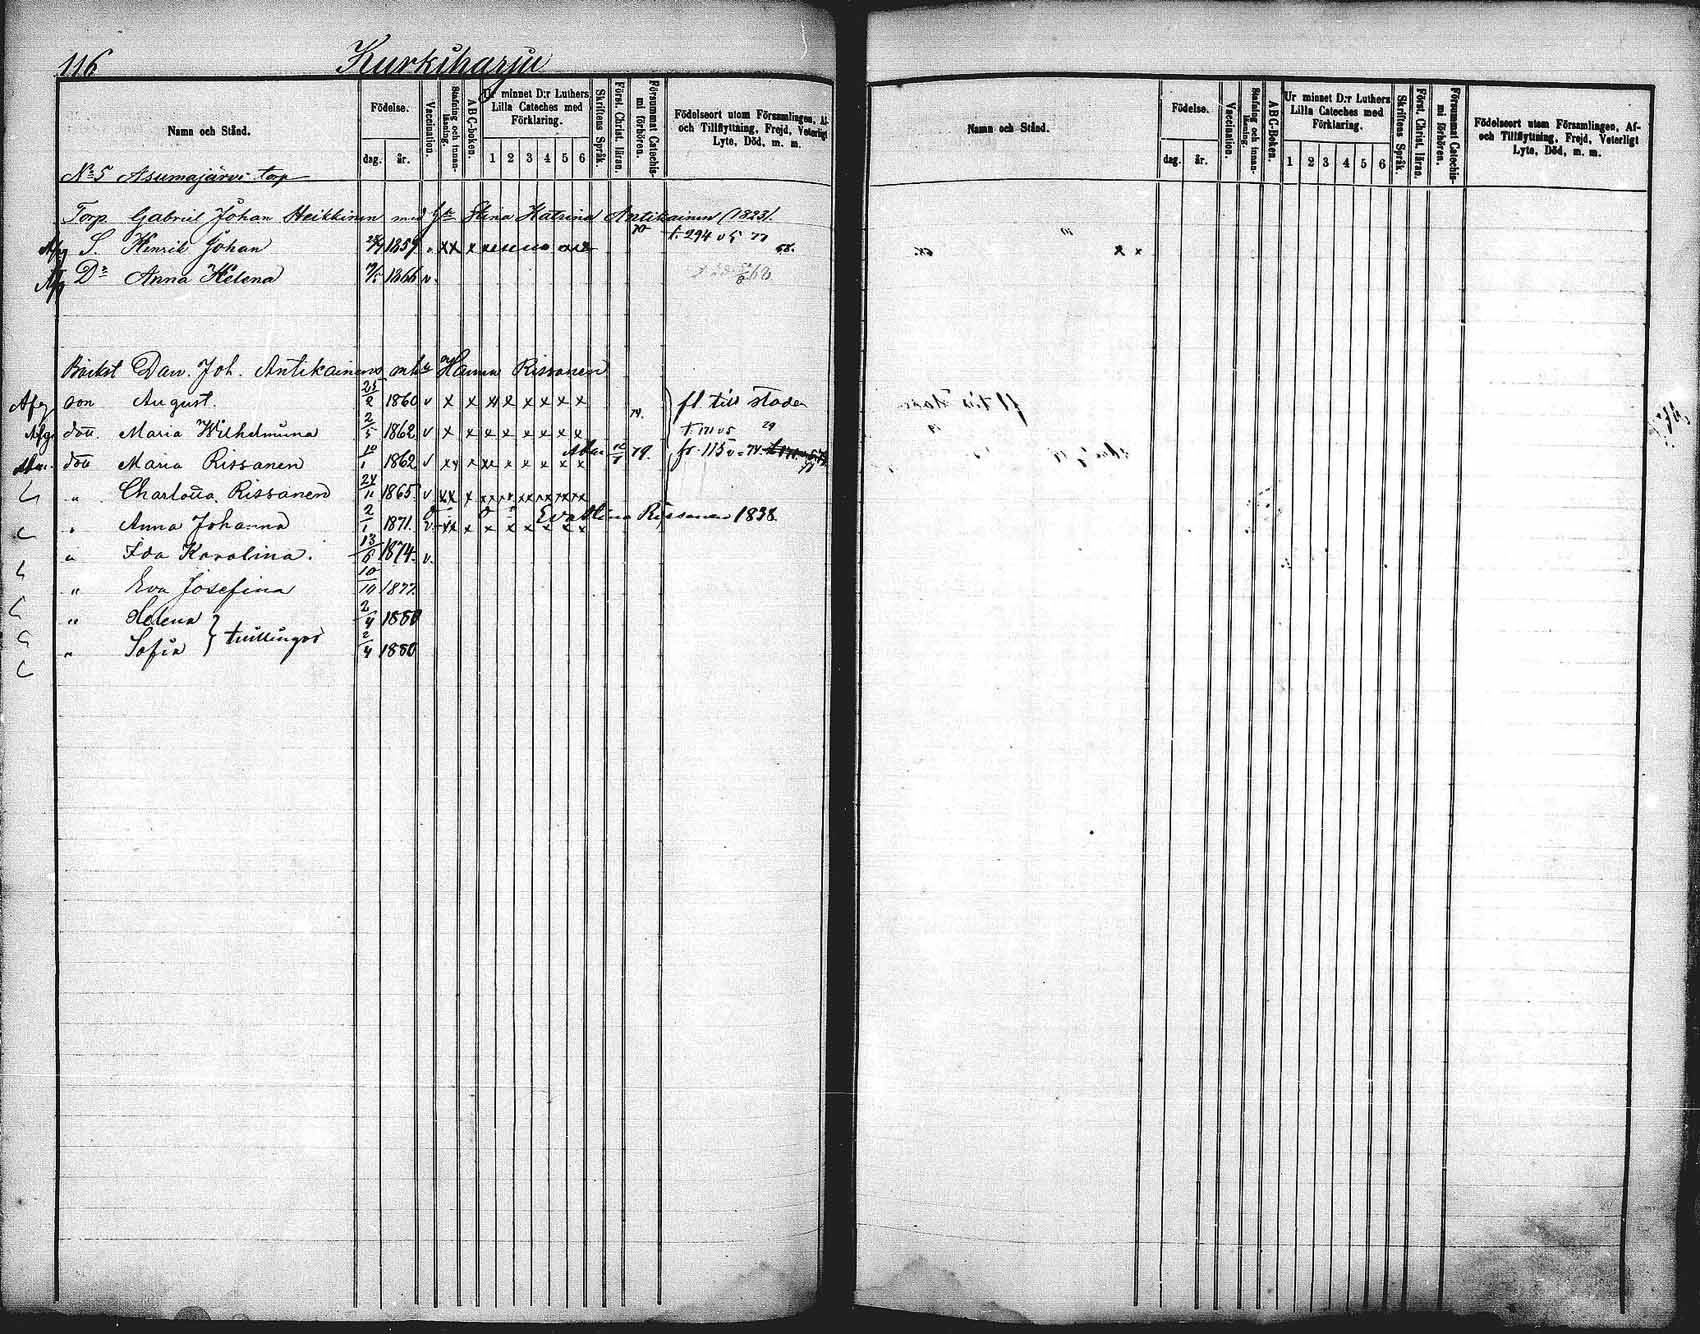 116 Kurkiharju
Namn och Stånd.
Födelse.
dag. år.
Vaccination.
Stafning och innanläsning.
ABC-boken.
Ur minnet D:r Luthers Lilla Cateches med Förklaring.
1 2 3 4 5 6
Skriftens Språk.
Först. Christ. läran.
Försummat Catechismi förhören.
Födelseort utom Församlingen, Af- och Tillflyttning, Frejd, Veterligt Lyte, Död, m. m.
No 5 Asumajärvi torp
Torp. Gabriel Johan Heikkinen med h. Stina Katrina Antikainen (1823).
Afg S. Henrik Johan 1859 x x x 70 t. 294 v 5 77
Afg Dr Anna Helena 1866 v.
Dan. Joh. Antikainens Hanna Rissanen
Afg son August. 25/2 1860 v x x x x x x x x fl. till staden
Afg dott. Maria Wilhelmina 2/5 1862 v x x x x x x x x 74.
dott Maria Rissanen 10/1 1862 v x x x x x x x x 79. fr. 115 v
" Charlotta Rissanen 24/11 1865 v x x x x x x x x
" Anna Johanna 2/1 1871. v x x x x x x x x Rissanen 1838
" Ida Karolina. 13/6 1874 v.
" Eva Josefina 10/10 1877
" Helena 2/4 1880
" Sofia } tvillingar 2/4 1880
Namn och Stånd.
Födelse.
dag. år.
Vaccination.
Stafning och innanläsning.
ABC-Boken.
Ur minnet D:r Luthers Lilla Cateches med Förklaring.
1 2 3 4 5 6
Skriftens Språk.
Först. Christ. läran.
Försummat Catechismi förhören.
Födelseort utom Församlingen, Af- och Tillflyttning, Frejd, Veterligt Lyte, Död, m. m.